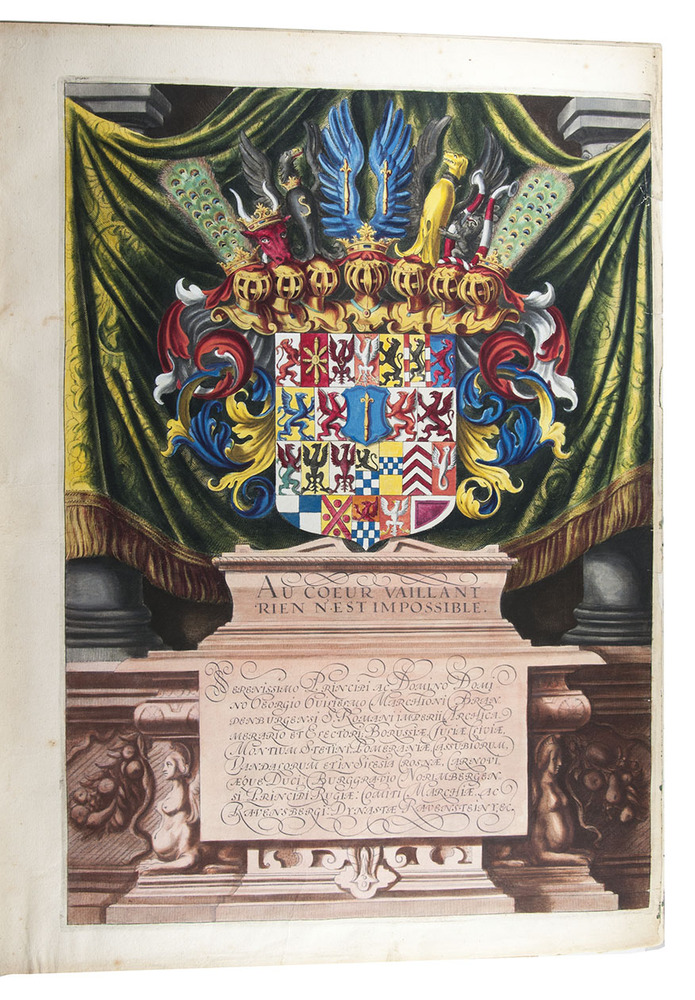 AU COEUR VAILLANT
RIEN N'EST IMPOSSIBLE.
SERENISSIMO PRINCIPI AC DOMINO DOMI
NO GEORGIO GUILIELMO MARCHIONI BRAN
DENBURGENSI S. ROMANI IMPERII ARCHICA
MERARIO ET ELECTORI, BORUSSIÆ, IULIÆ, CLIVIÆ,
MONTIUM, STETINI, POMERANIÆ, CASUBIORUM,
VANDALORUM ET IN SILESIA CROSNÆ, CARNOVI,
ÆQUE DUCI, BURGGRAVIO NORIMBERGEN
SI PRINCIPI RUGIÆ, COMITI MARCHIÆ, AC
RAVENSBERGI, DYNASTÆ RAVENSTEINY, &C.